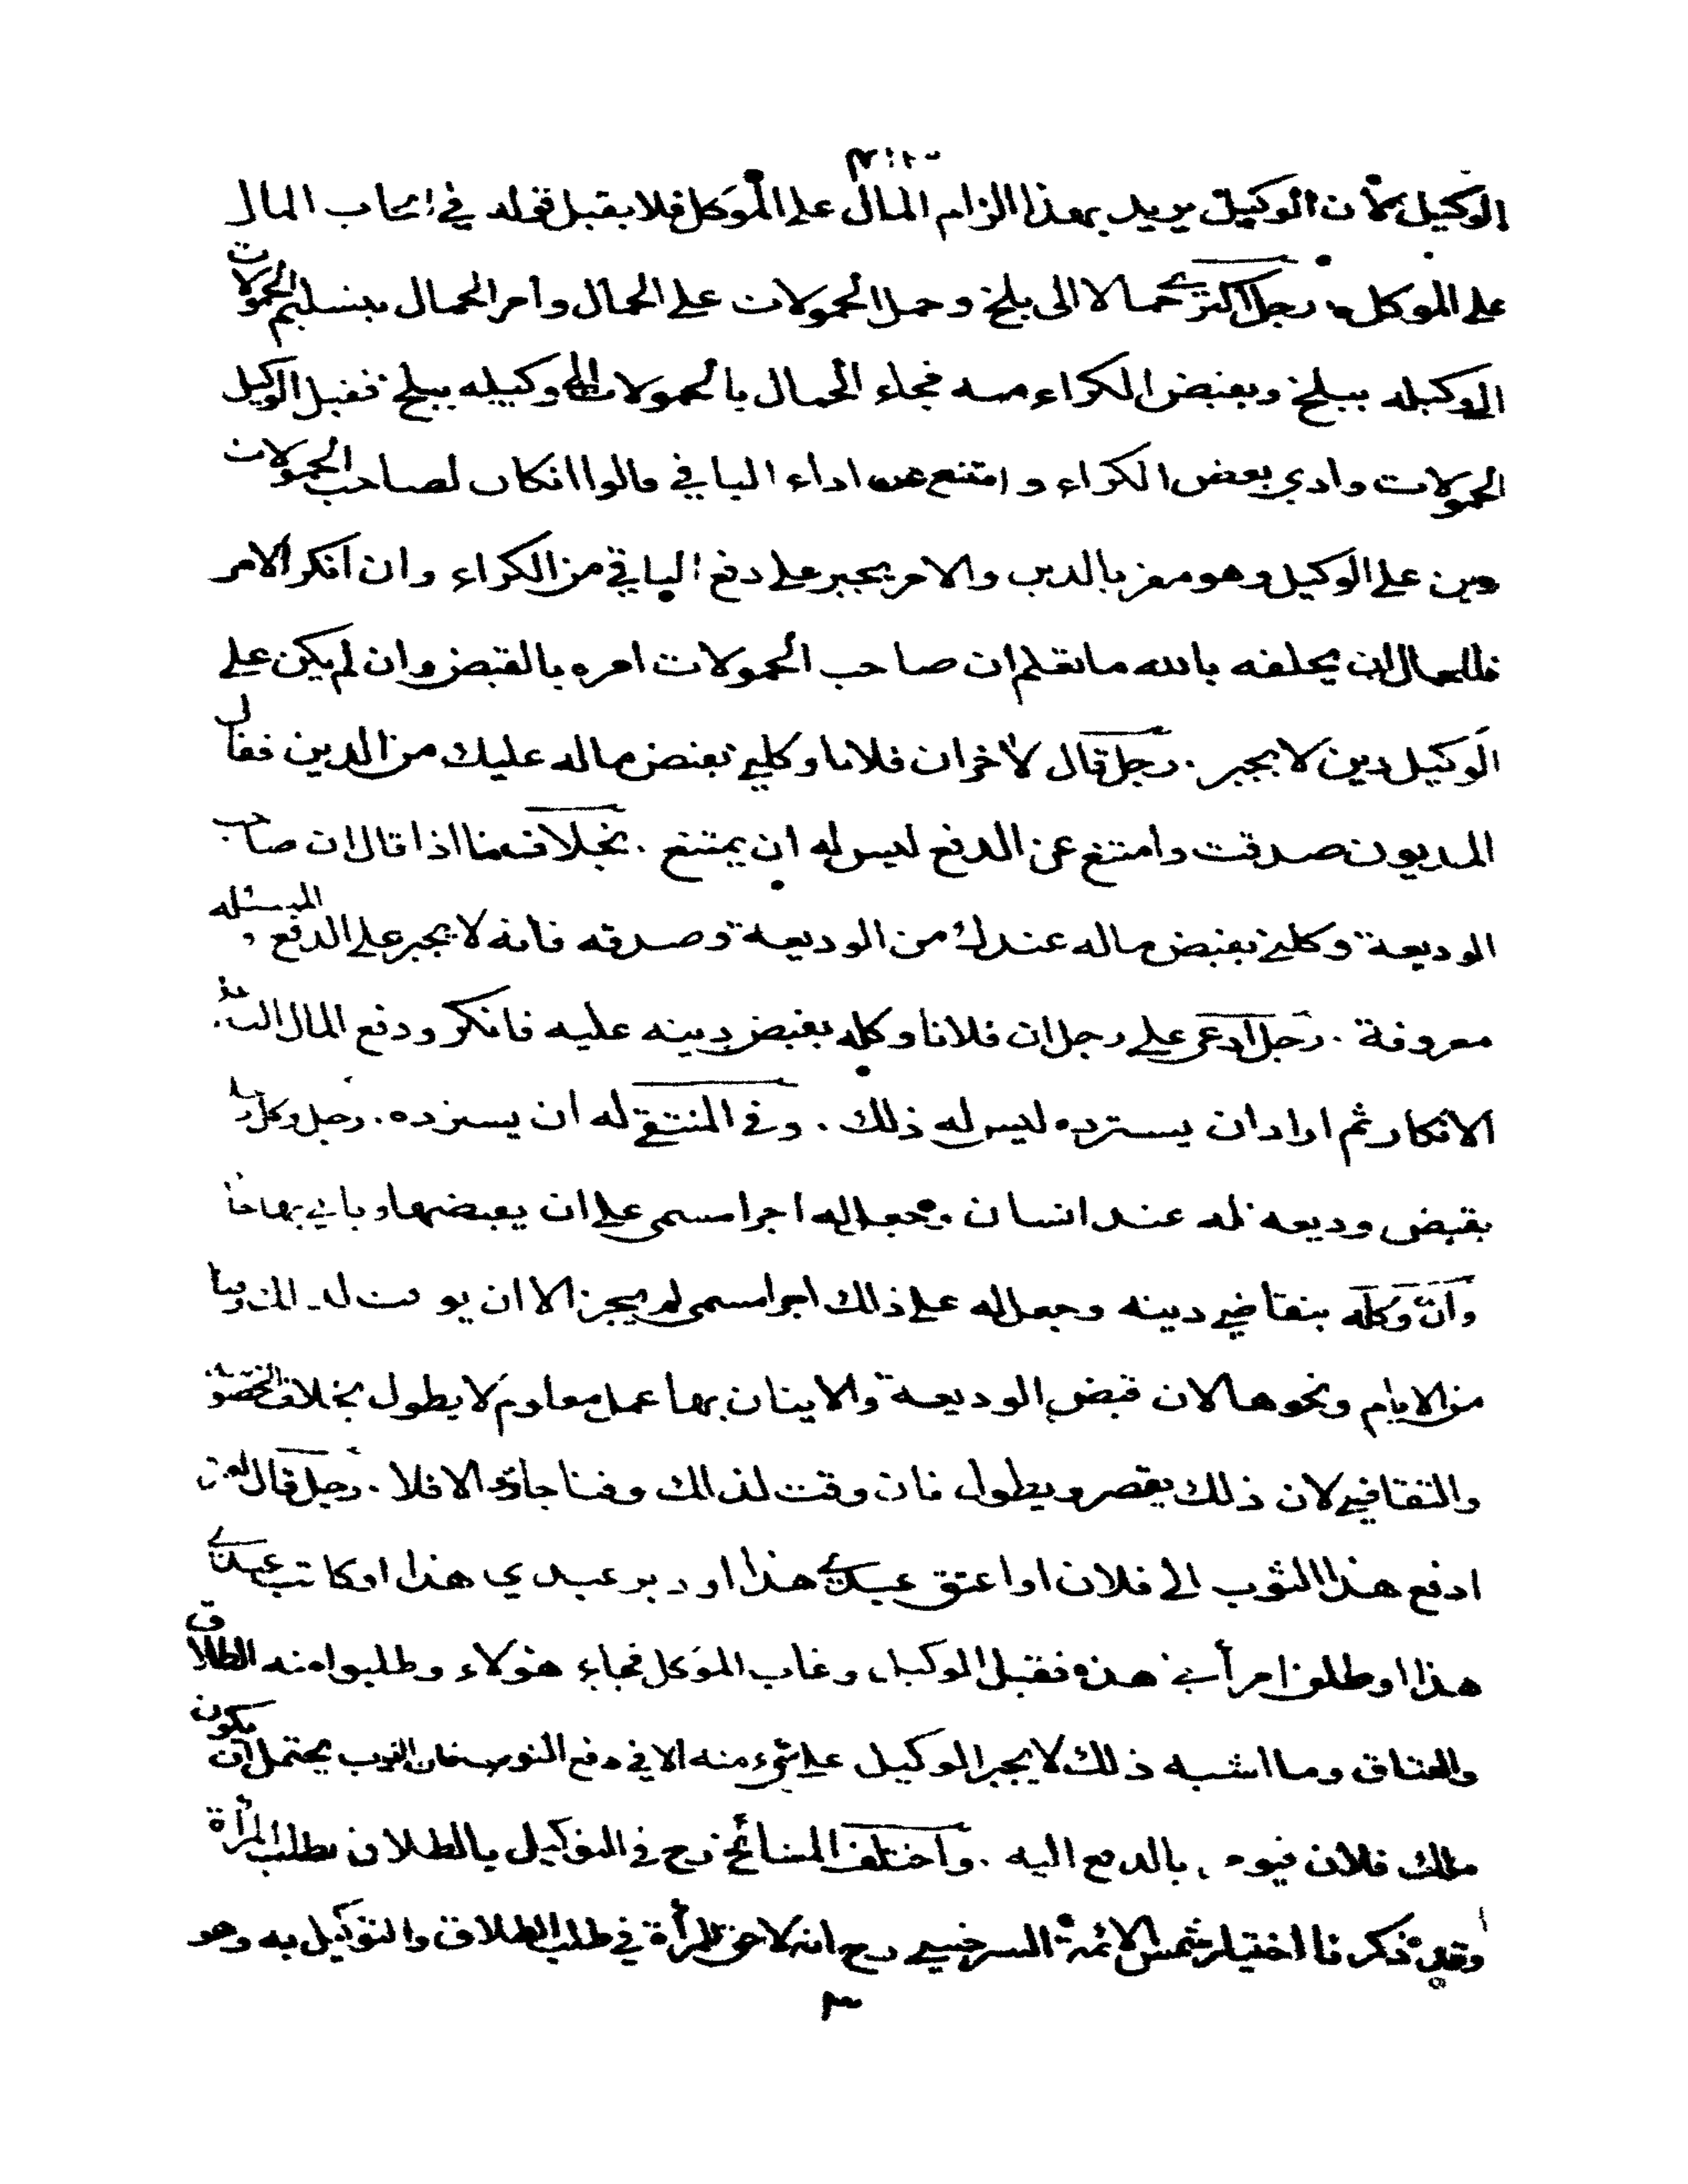 الوكيل لان الوكيل يريد بهذا الزام المال على الموكل فلا يقبل قوله في ايجاب المال
على الموكل . رجل اكترى حمالا الى بلخ وحمل الحمولات على الحمال وامر الحمال بتسليم الحمولات
الى وكيله ببلخ وبقبض الكراء منه فجاء الحمال بالحمولات الى وكيله ببلخ فقبل الوكيل
الحمولات وادى بعض الكراء وامتنع عن اداء الباقي قالوا ان كان لصاحب الحمولات
دين على الوكيل وهو مقر بالدين والامر يجبر على دفع الباقي من الكراء وان انكر الامر
فللحمال ان يحلفه بالله ما تعلم ان صاحب الحمولات امره بالقبض وان لم يكن على
الوكيل دين لا يجبر . رجل قال لاخر ان فلانا وكلني بقبض ماله عليك من الدين فقال
المديون صدقت وامتنع عن الدفع ليس له ان يمتنع . بخلاف ما اذا قال ان صاحب
الوديعة وكلني بقبض ماله عندك من الوديعة وصدقه فانه لا يجبر على الدفع والمسئله
معروفة . رجل ادعى على رجل ان فلانا وكله بقبض دينه عليه فانكر ودفع المال اليه على
الانكار ثم اراد ان يسترده ليس له ذلك . وفي المنتقى له ان يسترده . رجل وكل رجلا
بقبض وديعه له عند انسان وجعل له اجرا مسمى على ان يقبضها وياتي بها جاز
وان وكله بتقاضي دينه وجعل له على ذلك اجرا مسمى لم يجز الا ان يوقت له
من الايام ونحوها لان قبض الوديعة والاتيان بها عمل معلوم لا يطول بخلاف الخصومة
والتقاضي لان ذلك يقصر ويطول فان وقت لذلك وقتا جاز والا فلا . رجل قال لغيره
ادفع هذا الثوب الى فلان او اعتق عبدي هذا او دبر عبدي هذا او كاتب عبدي
هذا او طلق امرأتي هذه فقبل الوكيل وغاب الموكل فجاء هؤلاء وطلبوا منه الطلاق
والعتاق وما اشبه ذلك لا يجبر الوكيل على شيء منه الا في دفع الثوب فان الثوب يحتمل ان يكون
ملك فلان فيؤمر بالدفع اليه . واختلف المشائخ رح في التوكيل بالطلاق بطلب المرأة
وقد ذكرنا اختيار شمس الائمة السرخسي رح انه لا حق للمرأة في طلب الطلاق والتوكيل به وهو